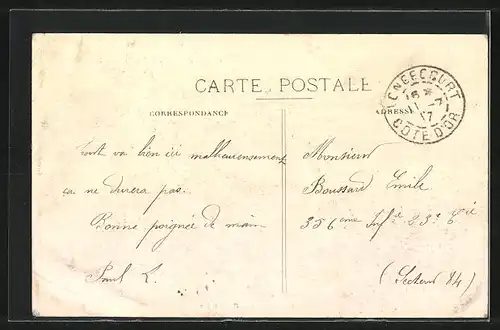 CARTE POSTALE
CORRESPONDANCE
ADRESSE
LONGECOURT
16 *
11 -7
17
COTE D'OR
Tout va bien ici malheureusement
ça ne durera pas.
Bonne poignée de main
Paul L.
Monsieur
Boussard Emile
356eme Inf ie 23e Cie
(Secteur 84)